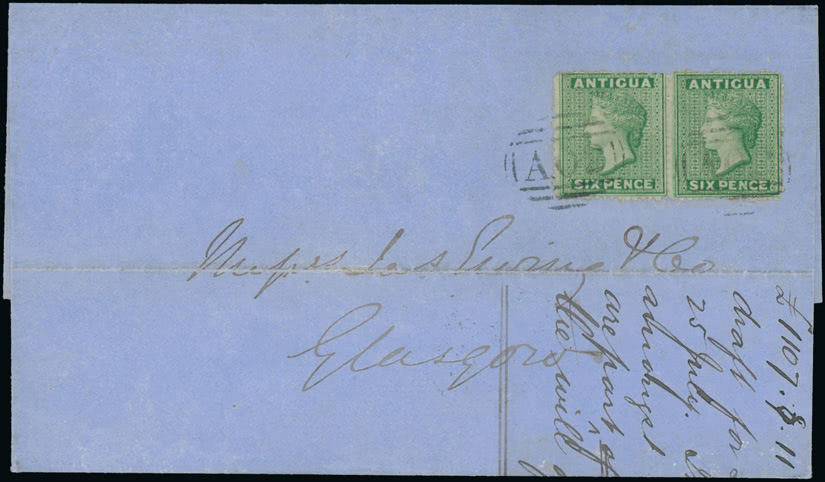 ANTIGUA ANTIGUA
SIX PENCE SIX PENCE
A02
Messrs Jas Ewing & Co
Glasgow
£1107.8.11
draft for
25 July.
amongst
are part of
the will